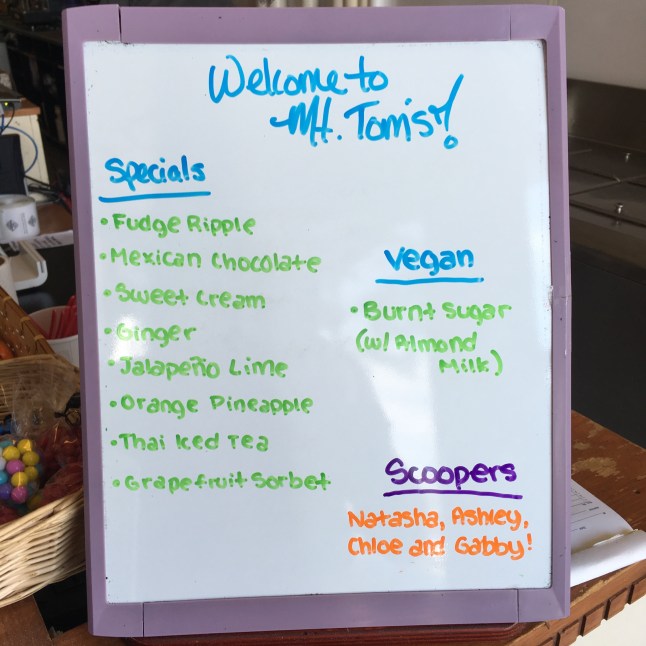 Welcome to
Mt. Tom's!
Specials
• Fudge Ripple
• Mexican Chocolate
• Sweet Cream
• Ginger
• Jalapeño Lime
• Orange Pineapple
• Thai Iced Tea
• Grapefruit Sorbet
Vegan
• Burnt Sugar
(w/ Almond
Milk)
Scoopers
Natasha, Ashley,
Chloe and Gabby!